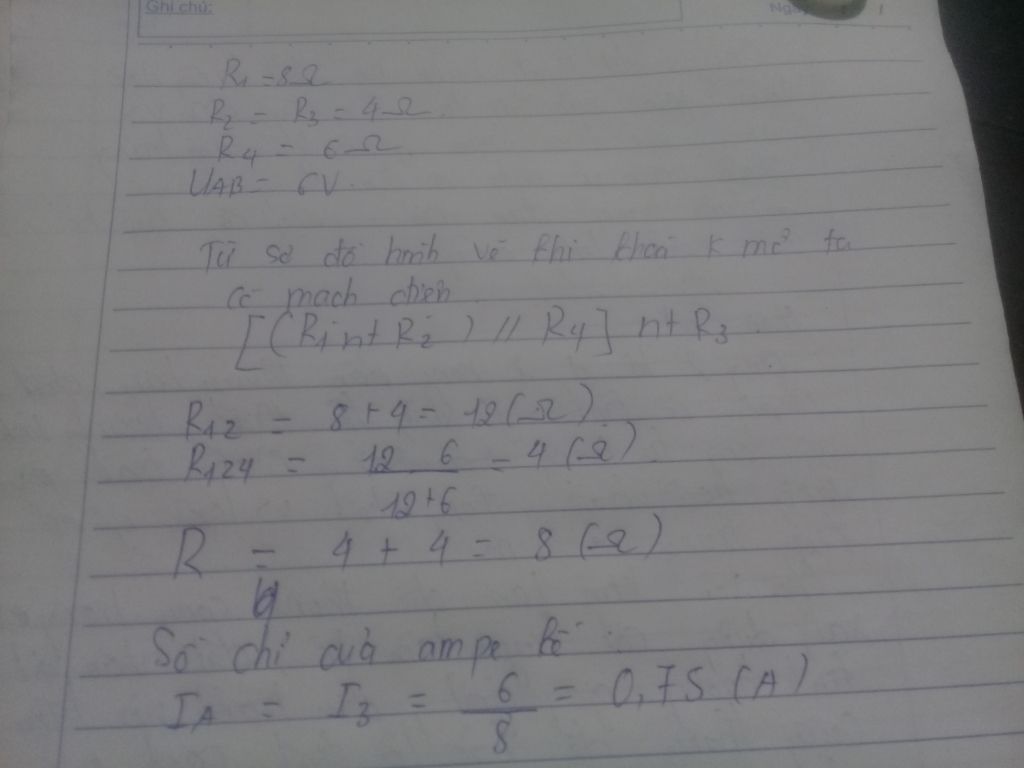 Ghi chú:
R1 = 8Ω
R2 = R3 = 4Ω
R4 = 6Ω
UAB = 6V.
Từ sơ đồ hình vẽ khi khoá K mở ta
có mạch điện
[(R1 nt R2) // R4] nt R3
R12 = 8 + 4 = 12 (Ω)
R124 = 12 6 = 4 (Ω)
12+6
R = 4 + 4 = 8 (Ω)
Số chỉ của ampe kế
IA = I3 = 6 = 0,75 (A)
8